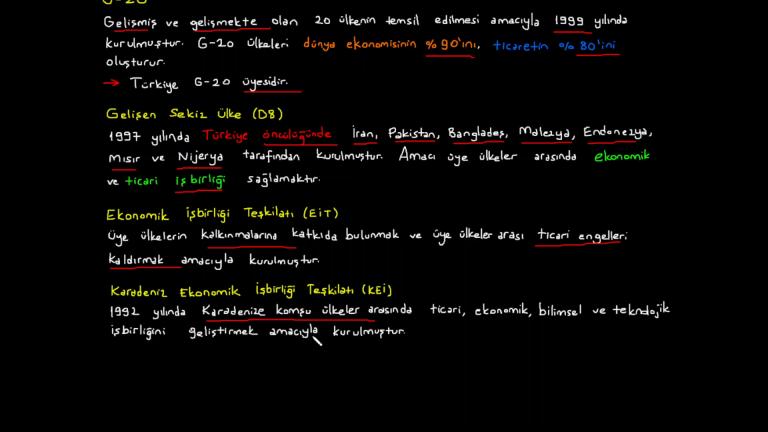 G-20
Gelişmiş ve gelişmekte olan 20 ülkenin temsil edilmesi amacıyla 1999 yılında
kurulmuştur. G-20 ülkeleri dünya ekonomisinin %90'ını, ticaretin %80'ini
oluşturur.
→ Türkiye G-20 üyesidir.
Gelişen Sekiz Ülke (D8)
1997 yılında Türkiye öncülüğünde İran, Pakistan, Bangladeş, Malezya, Endonezya,
Mısır ve Nijerya tarafından kurulmuştur. Amacı üye ülkeler arasında ekonomik
ve ticari işbirliği sağlamaktır.
Ekonomik İşbirliği Teşkilatı (EİT)
Üye ülkelerin kalkınmalarına katkıda bulunmak ve üye ülkeler arası ticari engelleri
kaldırmak amacıyla kurulmuştur.
Karadeniz Ekonomik İşbirliği Teşkilatı (KEİ)
1992 yılında Karadenize komşu ülkeler arasında ticari, ekonomik, bilimsel ve teknolojik
işbirliğini geliştirmek amacıyla kurulmuştur.